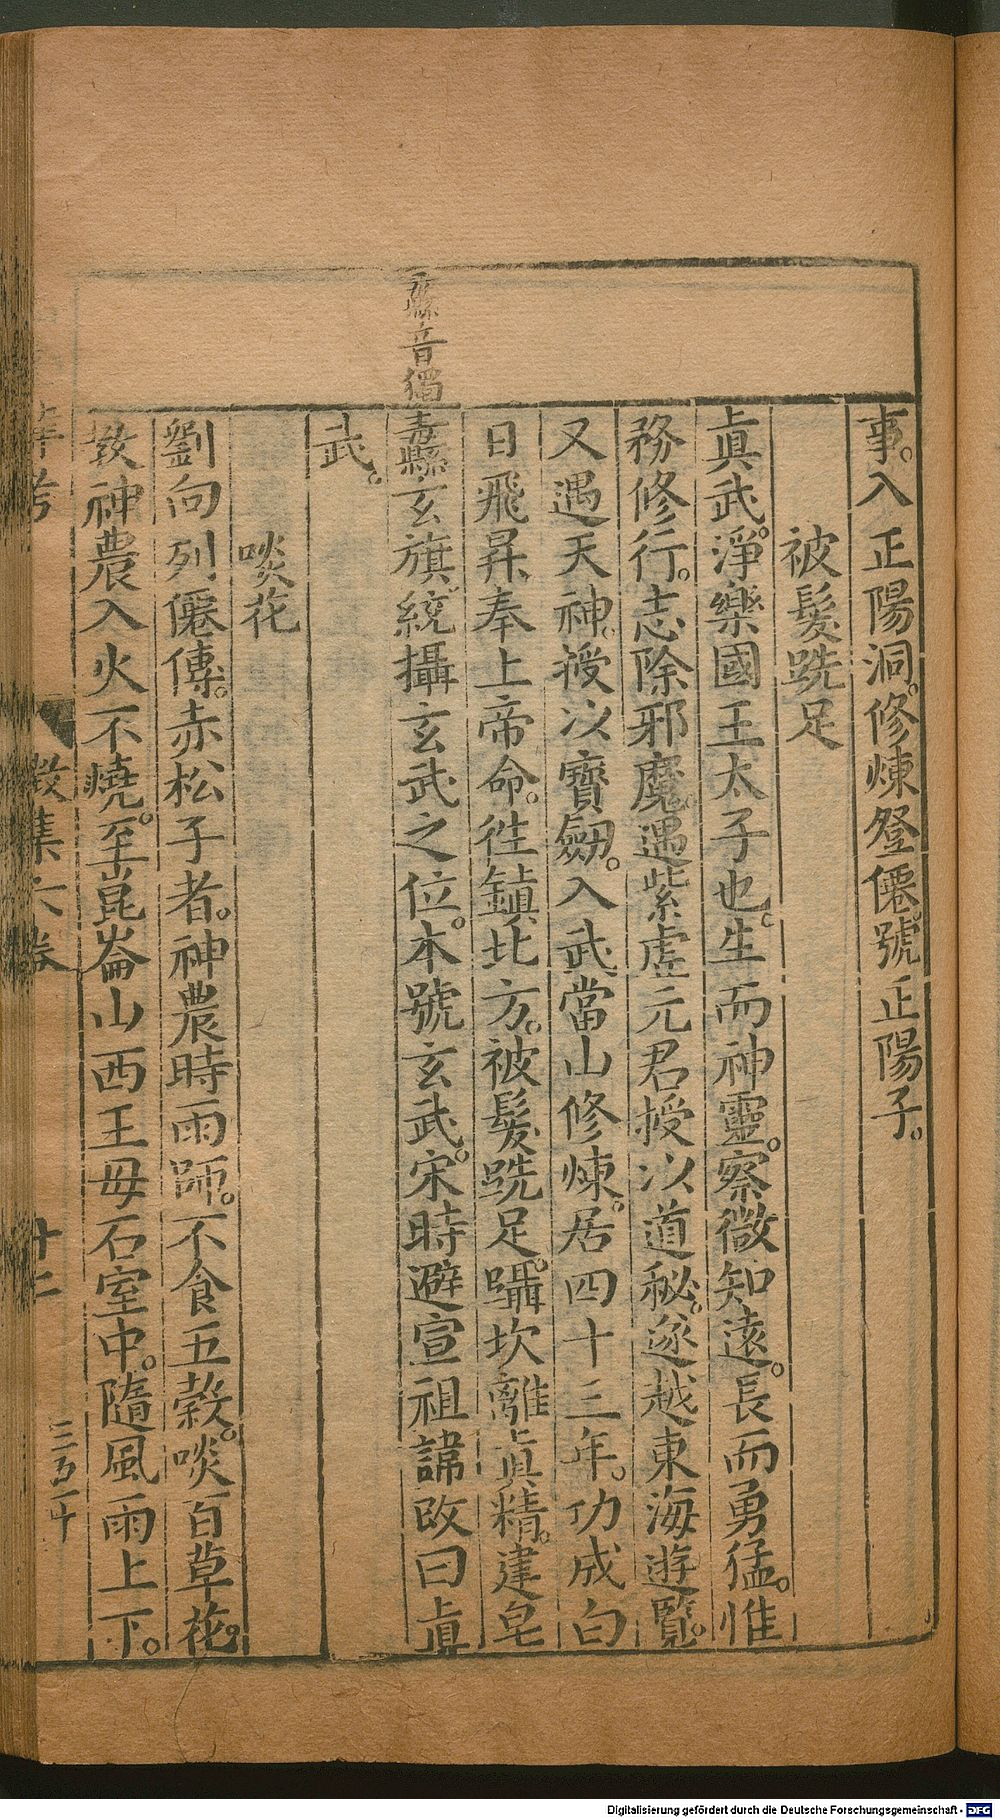 事。入正陽洞。修煉登僊。號正陽子。
被髮跣足
眞武。淨樂國王太子也。生而神靈。察微知遠。長而勇猛。惟
務修行。志除邪魔。遇紫虛元君授以道秘。遂越東海遊覽。
又遇天神。授以寶劒。入武當山修煉。居四十三年。功成白
日飛昇。奉上帝命。往鎮北方。被髮跣足。躡坎離眞精。建皂
纛音獨
纛玄旗。統攝玄武之位。本號玄武。宋時避宣祖諱改曰眞
武。
啖花
劉向列僊傳。赤松子者。神農時雨師。不食五穀。啖百草花。
敎神農入火不燒。至崑崙山西王母石室中。隨風雨上下。
集六卷
十二
三百十
Digitalisierung gefördert durch die Deutsche Forschungsgemeinschaft - DFG